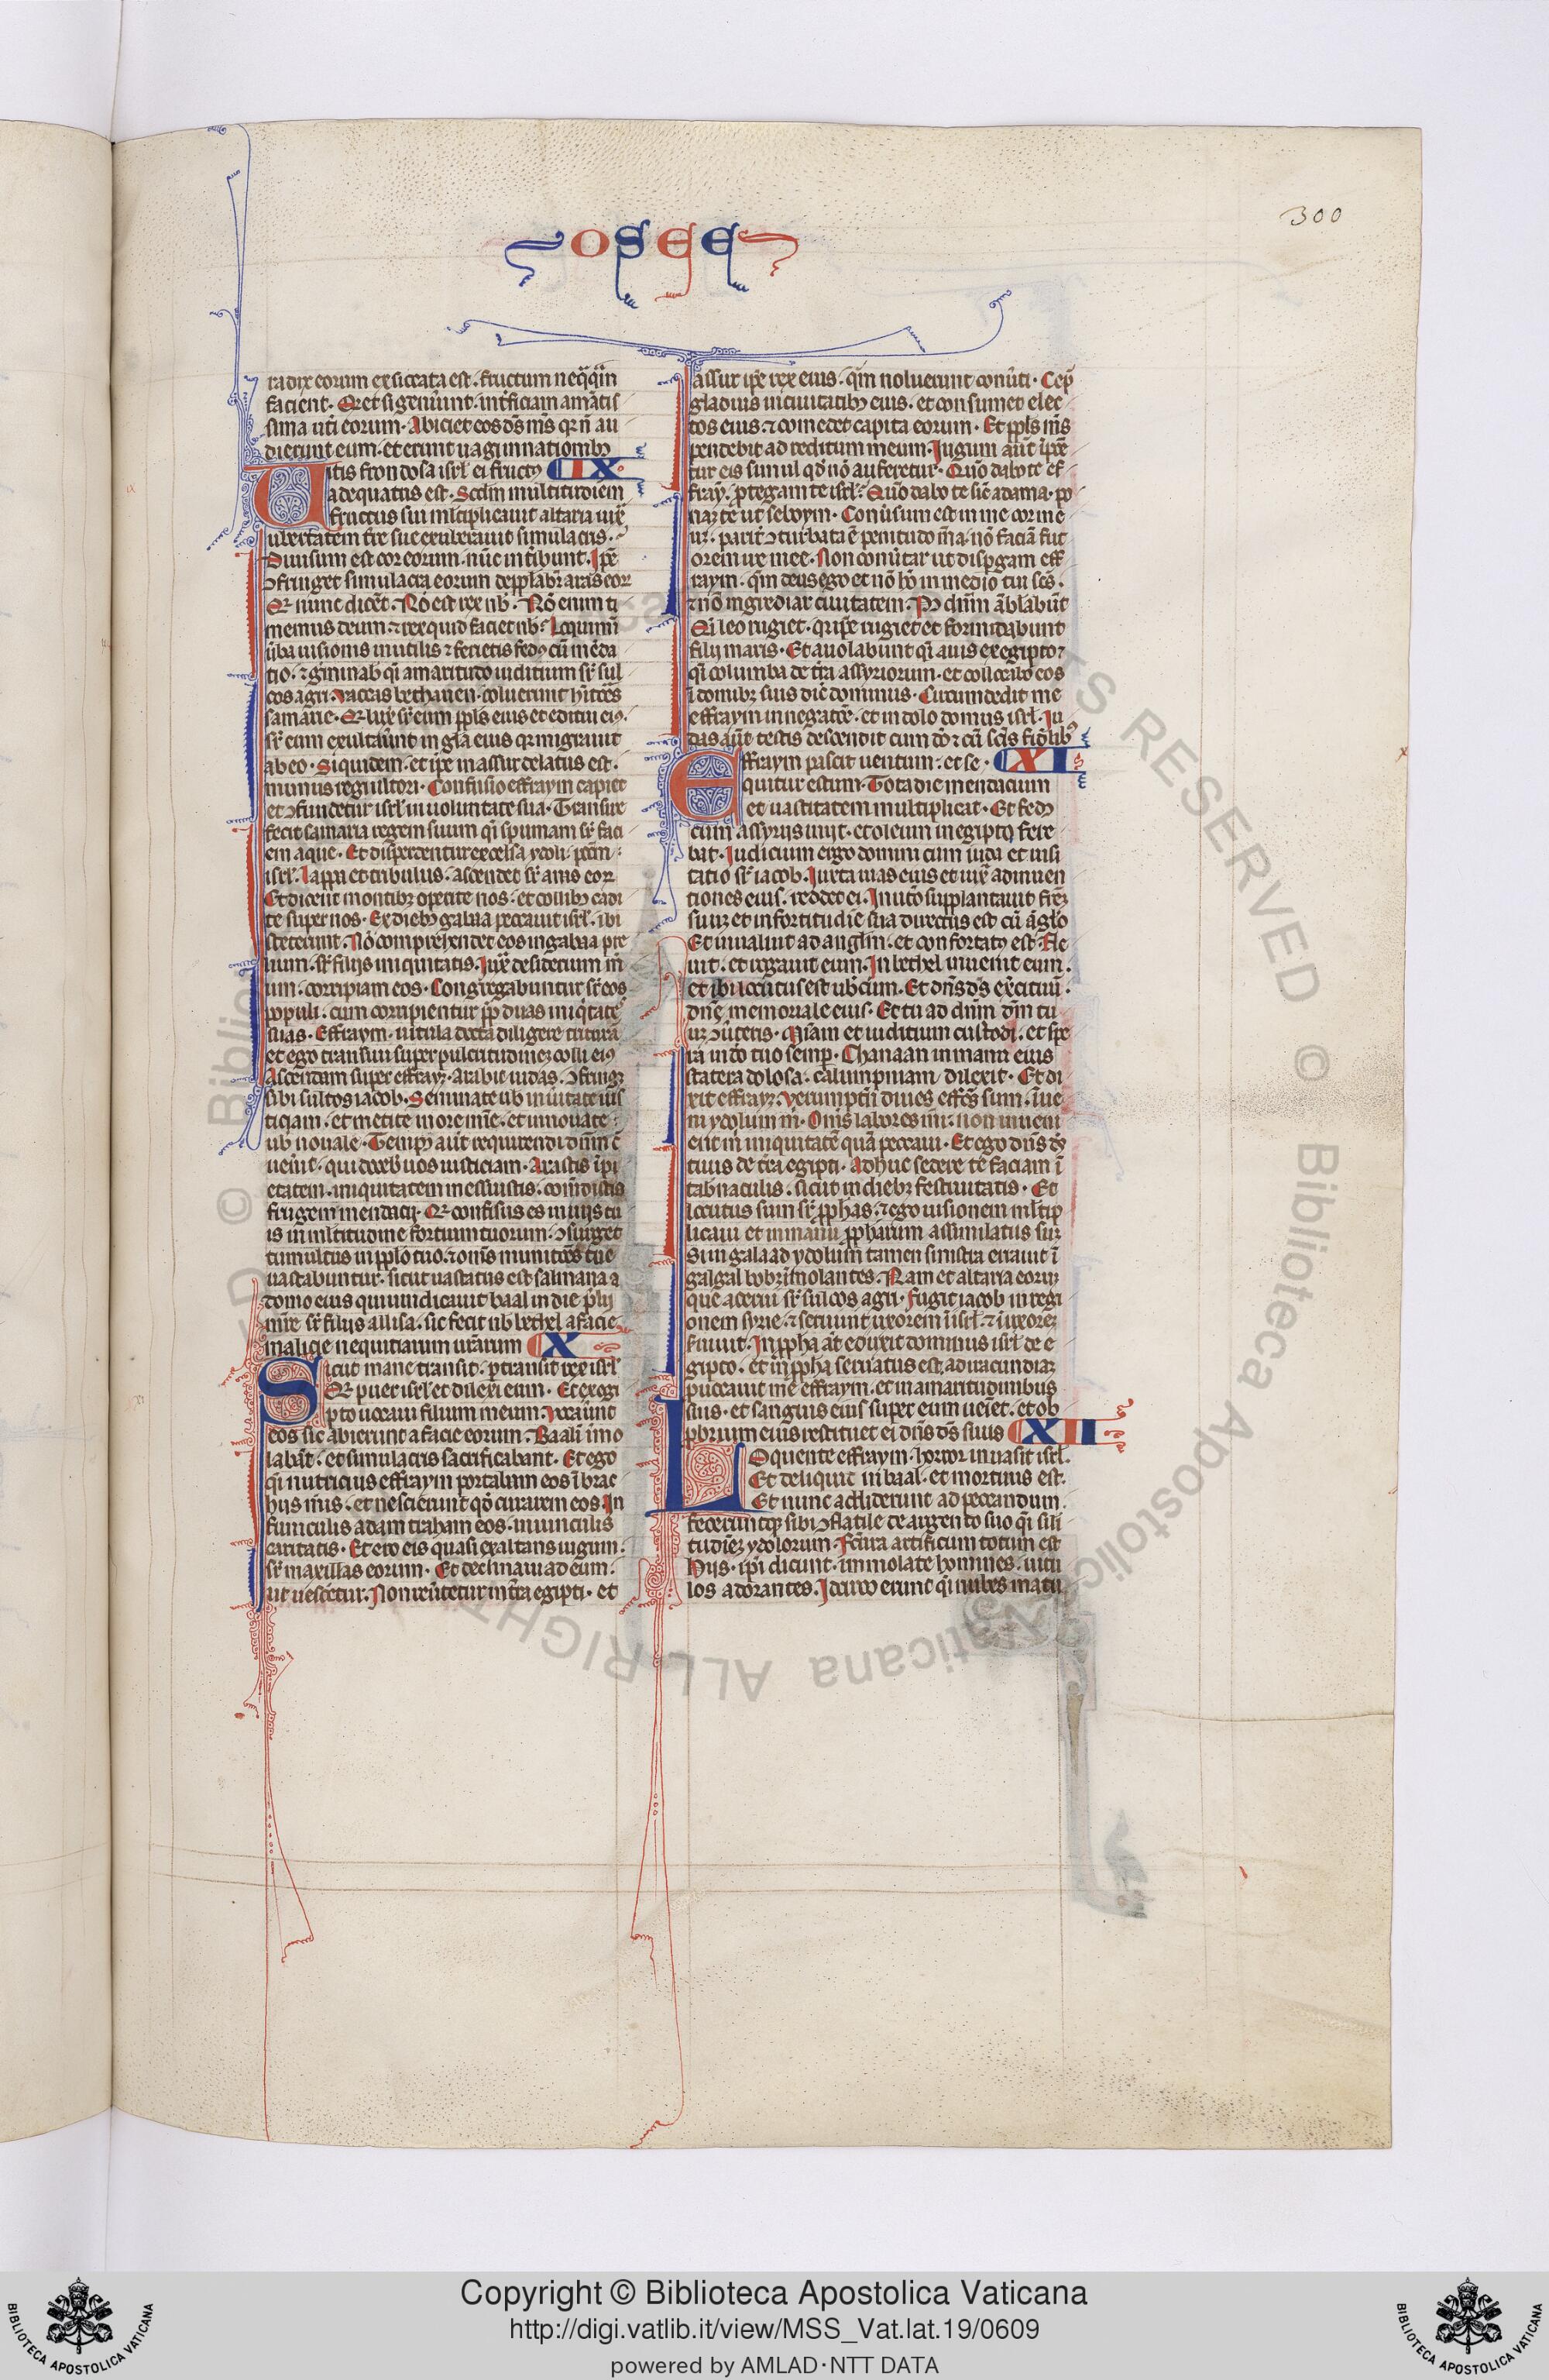 300
OSEE
radix eorum exsiccata est. fructum neq̄q̄m
facient. Qd et si genuint. int̃ficiam amãtis
sima ut̃i eorum. Abiciet eos ds ms qr n̄ au
dierunt eum. et erunt uagi in nationibꝫ
Uitis frondosa isrl̃ ei fructꝰ IX
adequatus est. Scdm multitudiem
fructus sui ml̃tiplicauit altaria iux̃
ubertatem tr̃e sue exuberauit simulacris.
Diuisum est cor eorum. nũc int̃ibunt. Ip̃e
ꝯfringet simulacra eorum depp̃labr̃ aras eor
Qr nunc dicẽt. Nõ est rex nb. Nõ enim ti
memus deum. ⁊ rex quid faciet nb. Loquimi
ũba uisionis inutilis ⁊ ferietis fedꝰ cũ mẽda
tio. ⁊ gminab qi amaritudo iuditium sr̃ sul
cos agri. Vaccas bethauen. coluerunt hitc̃s
samarie. Qr lux̃ sr̃ eum ppls eius et editui eiꝰ.
sr̃ eum exultaũnt in gl̃a eius qr migrauit
ab eo. Siquidem. et ipe in assur delatus est.
munus regi ultori. Confusio effraym capiet
et ꝯfundetur isrl̃ in uoluntate sua. Transire
fecit samaria regem suum qi spumam sr̃ faci
em aque. Et disperdentur excelsa ydoli. pccm̃
isrl̃. Lappa et tribulus. ascendet sr̃ aras eor
Et dicent montibꝫ operite nos. et collibꝫ cadi
te super nos. Ex diebꝫ gabaa peccauit isrl̃. ibi
steterunt. Nõ comprehendet eos in gabaa pre
lium. sr̃ filijs iniquitatis. Iux̃ desiderium m̃
um. corripiam eos. Congregabuntur sr̃ eos
populi. cum corripientur pp̃ duas iniq̃tates
suas. Effraym. uitula docta diligere triturã
et ego transiui super pulcritudinẽ colli eiꝰ
Ascendam super effraym. arabit iudas. ꝯfringꝫ
sibi sulcos iacob. Seminate ub in ũitate ius
ticiam. et metite in ore mĩe. et innouate
ub nouale. Tempꝰ aũt requirendi dnm̃ c̃
uenit. qui doceb uos iusticiam. Arastis ĩpi
etatem. iniquitatem messuistis. comedistis
frugem mendacij. Qr confisus es in uijs tu
is in ml̃titudine fortium tuorum. ꝯsurget
tumultus in pp̃lo tuo. ⁊ om̃s munitões tue
uastabuntur. sicut uastatus est salmana a
domo eius qui uindicauit baal in die p̃lij
mr̃e sr̃ filijs allisa. sic fecit ub bethel a facie
malicie nequitiarum ur̃arum X
Sicut mane transit. ꝑtransiit rex isrl̃
Qr puer isrl̃ et dilexi eum. Et ex egi
pto uocaui filium meum. Vocaũnt
eos sic abierunt a facie eorum. Baalĩ immo
labãt. et simulacris sacrificabant. Et ego
qi nutricius effraym portabam eos ĩ brac
hijs meis. et nescierunt qd curarem eos. In
funiculis adam traham eos. in uinculis
caritatis. Et ero eis quasi exaltans iugum.
sr̃ maxillas eorum. Et declinaui ad eum.
ut uesceretur. Non reũtetur in tr̃a egipti. et
assur ipẽ rex eius. qm̃ noluerunt conũti. Cep̃
gladius in ciuitatibꝫ eius. et consumet elec
tos eius. ⁊ comedet capita eorum. Et ppls m̃s
pendebit ad reditum meum. Iugum aũt ip̃oe
tur eis simul qd nõ auferetur. Quõ dabo te ef
fraym. ꝓtegam te isrl̃. Quõ dabo te sic adama. po
nam te ut seboym. Conũsum est in me cor me
um. parit̃ ꝯturbata ẽ penitudo mea. nõ faciã fur
orem ire mee. Non conũtar ut disp̃gam eff
raym. qm̃ deus ego et nõ hõ. in medio tui scs̃.
⁊ nõ ingrediar ciuitatem. P9 dnm̃ ãblabũt
Qi leo rugiet. qr ip̃e rugiet et formidabunt
filij maris. Et auolabunt qi auis ex egipto ⁊
qi columba de tr̃a assyriorum. et collocabo eos
ĩ domibꝫ suis dic̃ dominus. Circumdedit me
effraym in negatõe. et in dolo domus isrl̃. Iu
das aũt testis descendit cum do ⁊ cũ scĩs fidelibꝫ
Effraym pascit uentum. et se XI
quitur estum. Tota die mendacium
et uastitatem multiplicat. Et fedꝰ
cum assyrijs inijt. et oleum in egiptũ fere
bat. Iudicium ergo domini cum iuda et uisi
tatio sr̃ iacob. Iuxta uias eius et iux̃ adinuen
tiones eius. reddet ei. In ut̃o supplantauit fr̃em
suum et in fortitudie sua directus est cũ ãglo
Et inualuit ad anglm̃. et confortatꝰ est. Fle
uit. et rogauit eum. In bethel inuenit eum.
et ibi locutus est nb̃cum. Et dns̃ ds exercituũ.
dns̃ memoriale eius. Et tu ad dm̃ tu
um ꝯũteris. Mĩam et iuditium custodi. et spe
ra in dõ tuo semp̃. Chanaan in manu eius
statera dolosa. calumpniam dilexit. Et di
xit effraym. Verumptñ diues effc̃s sum. ĩue
ni ydolum m̃. Om̃s labores mei non inueni
ent m̃ iniquitatẽ quã peccaui. Et ego dns̃ ds
tuus de tr̃a egipti. Adhuc sedere te faciam ĩ
tabnaculis. sicut in diebꝫ festiuitatis. Et
locutus sum sr̃ p̃phas. ⁊ ego uisionem ml̃tip
licaui et in manu p̃pharum assimilatus sum
Si in galaad ydolum tamen frustra erant ĩ
galgal bobꝫ ĩmolantes. Nam et altaria eorum
que acerui sr̃ sulcos agri. Fugit iacob in regi
onem syrie. ⁊ seruiuit uxorem ĩ isrl̃. ⁊ ĩ uxorem
seruuit. In p̃pha aũt eduxit dominus isrl̃ de e
gipto. et in p̃pha seruatus est. ad iracundiam
puocauit me effraym. et in amaritudinibus
suis. et sanguis eius super eum ueiet. et ob
ꝓbrium eius restituet ei dns̃ ds suus XII
Loquente effraym. horror inuasit isrl̃.
Et deliquit in baal. et mortuus est.
Et nunc addiderunt ad peccandum.
feceruntqꝫ sibi ꝯflatile de argento suo qi sili
tudiem ydolorum. Fc̃ura artificum totum est
Hijs. ip̃i dicunt. immolate homines. uitu
los adorantes. Idcirco erunt qi nubes matu
Copyright © Biblioteca Apostolica Vaticana
http://digi.vatlib.it/view/MSS_Vat.lat.19/0609
powered by AMLAD·NTT DATA
BIBLIOTECA APOSTOLICA VATICANA
BIBLIOTECA APOSTOLICA VATICANA
© Biblioteca Apostolica Vaticana ALL RIGHTS RESERVED